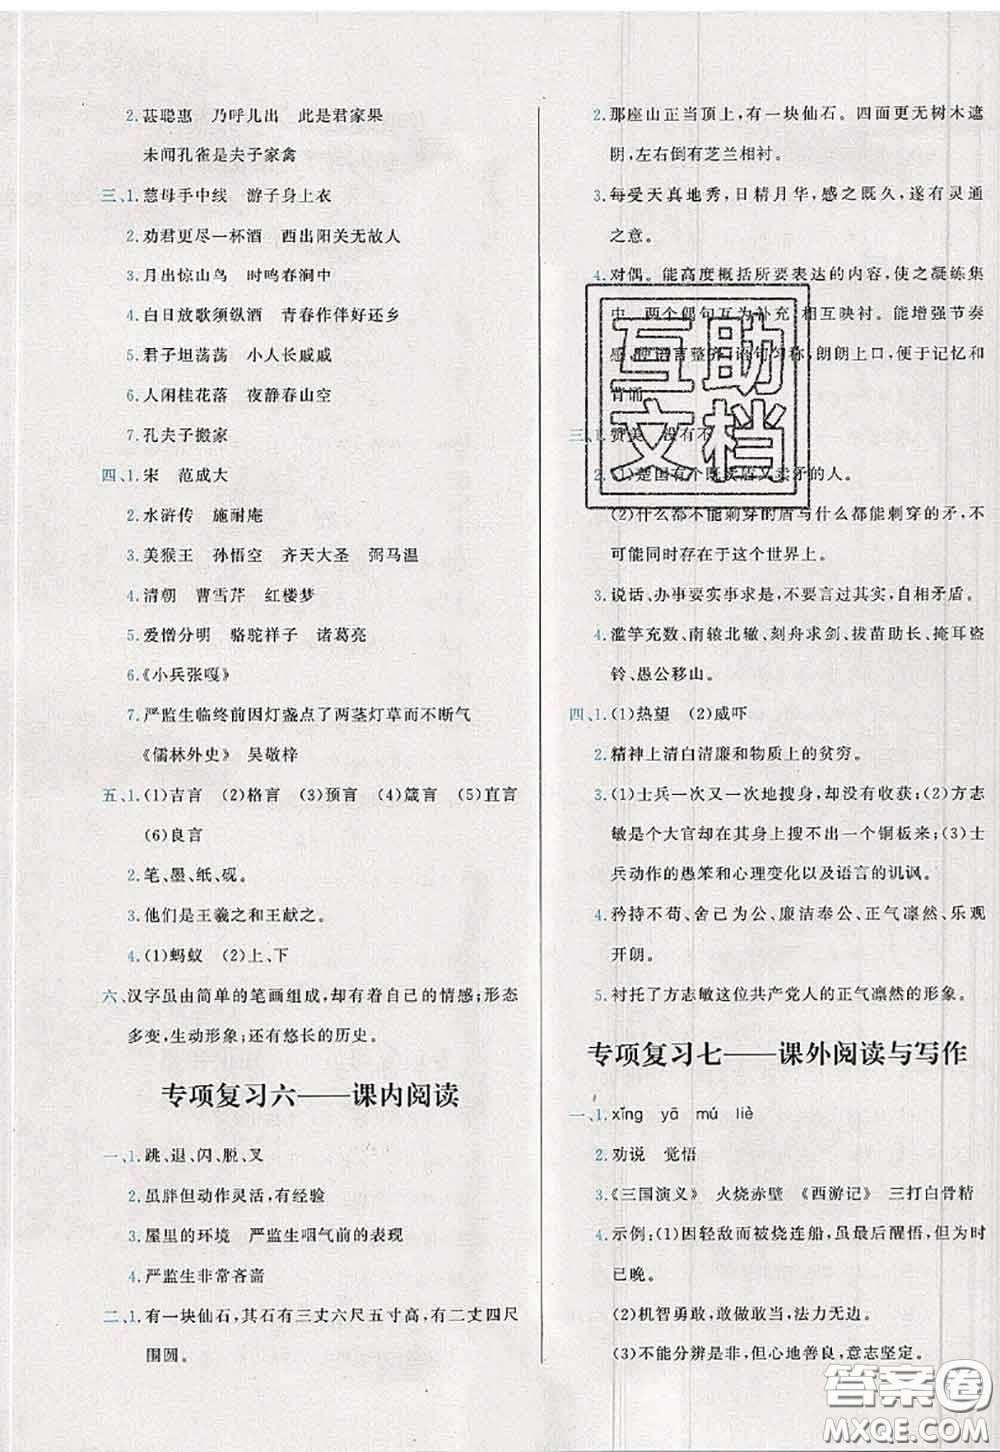 2.甚聪惠 乃呼儿出 此是君家果
未闻孔雀是夫子家禽
三、1.慈母手中线 游子身上衣
2.劝君更尽一杯酒 西出阳关无故人
3.月出惊山鸟 时鸣春涧中
4.白日放歌须纵酒 青春作伴好还乡
5.君子坦荡荡 小人长戚戚
6.人闲桂花落 夜静春山空
7.孔夫子搬家
四、1.宋 范成大
2.水浒传 施耐庵
3.美猴王 孙悟空 齐天大圣 弼马温
4.清朝 曹雪芹 红楼梦
5.爱憎分明 骆驼祥子 诸葛亮
6.《小兵张嘎》
7.严监生临终前因灯盏点了两茎灯草而不断气
《儒林外史》 吴敬梓
五、1.(1)吉言 (2)格言 (3)预言 (4)箴言 (5)直言
(6)良言
2.笔、墨、纸、砚。
3.他们是王羲之和王献之。
4.(1)蚂蚁 (2)上、下
六、汉字虽由简单的笔画组成,却有着自己的情感;形态
多变,生动形象;还有悠长的历史。
专项复习六——课内阅读
一、1.跳、退、闪、脱、叉
2.虽胖但动作灵活,有经验
3.屋里的环境 严监生咽气前的表现
4.严监生非常吝啬
二、1.有一块仙石,其石有三丈六尺五寸高,有二丈四尺
围圆。
2.那座山正当顶上,有一块仙石。四面更无树木遮
阴,左右倒有芝兰相衬。
3.每受天真地秀,日精月华,感之既久,遂有灵通
之意。
4.对偶。能高度概括所要表达的内容,使之凝练集
中。两个偶句互为补充,相互映衬。能增强节奏
感,使语言整齐,语句匀称,朗朗上口,便于记忆和
背诵。
三、1.赞美 没有不
2.(1)楚国有个既卖盾又卖矛的人。
(2)什么都不能刺穿的盾与什么都能刺穿的矛,不
可能同时存在于这个世界上。
3.说话、办事要实事求是,不要言过其实,自相矛盾。
4.滥竽充数、南辕北辙、刻舟求剑、拔苗助长、掩耳盗
铃、愚公移山。
四、1.(1)热望 (2)威吓
2.精神上清白清廉和物质上的贫穷。
3.(1)士兵一次又一次地搜身,却没有收获;(2)方志
敏是个大官却在其身上搜不出一个铜板来;(3)士
兵动作的愚笨和心理变化以及语言的讥讽。
4.矜持不苟、舍己为公、廉洁奉公、正气凛然、乐观
开朗。
5.衬托了方志敏这位共产党人的正气凛然的形象。
专项复习七——课外阅读与写作
一、1.xǐng yā mú liè
2.劝说 觉悟
3.《三国演义》 火烧赤壁 《西游记》 三打白骨精
4.示例:(1)因轻敌而被烧连船,虽最后醒悟,但为时
已晚。
(2)机智勇敢,敢做敢当,法力无边。
(3)不能分辨是非,但心地善良,意志坚定。
互助
文档
答案卷
MXQE.COM